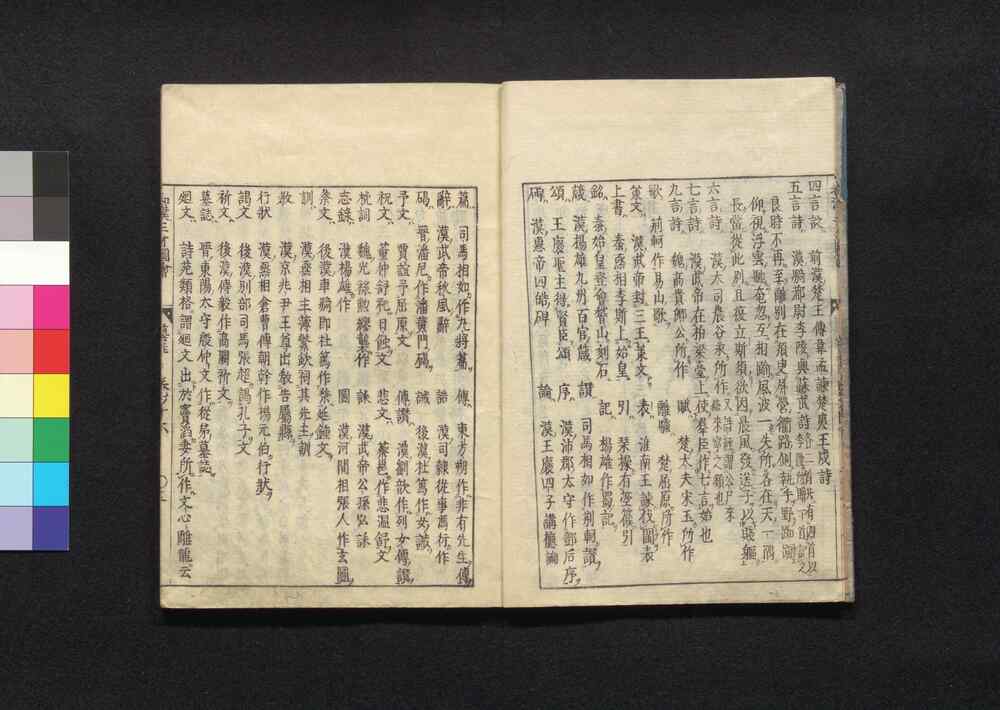 四言詩 前漢楚王傅韋孟諫楚夷王戊詩
五言詩 漢騎都尉李陵與蘇武詩
良時不再至離別在須臾屏營衢路側執手野踟蹰
仰視浮雲馳奄忽互相踰風波一失所各在天一隅
長當從此別且復立斯須欲因晨風發送子以賤軀
六言詩 漢大司農谷永所作
七言詩 漢武帝在柏梁臺上使羣臣作七言始也
九言詩 魏高貴鄉公所作 賦 楚大夫宋玉所作
歌 荊軻作易水歌 離騷 楚屈原所作
策文 漢武帝封三王策文 表 淮南王諫伐閩表
上書 秦丞相李斯上始皇 引 琴操有箜篌引
銘 秦始皇登會稽山刻石 記 楊雄作蜀記
箴 漢揚雄九州百官箴 讃 司馬相如作荊軻讃
頌 王褒聖主得賢臣頌 序 漢沛郡太守作鄧后序
碑 漢惠帝四皓碑 論 漢王褒四子講德論
篇 司馬相如作凡將篇 傳 東方朔作非有先生傳
辭 漢武帝秋風辭 誥 漢司隸從事馮衍作
碣 晉潘尼作潘黃門碣 誡 後漢杜篤作女誡
弔文 賈誼弔屈原文 傳讃 漢劉歆作列女傳讃
祝文 董仲舒祝日蝕文 悲文 蔡邕作悲溫舒文
挽詞 魏光祿勲繆襲作 誄 漢武帝公孫弘誄
志録 漢楊雄作 圖 漢河間相張人作玄圖
祭文 後漢車騎郎杜篤作祭延鍾文
訓 漢丞相主簿繁欽祠其先主訓
教 漢京兆尹王尊出教告屬縣
行狀 漢丞相倉曹傅朝幹作楊元伯行狀
謁文 後漢別部司馬張超謁孔子文
祈文 後漢傅毅作高闕祈文
墓誌 晉東陽太守殷仲文作從弟墓誌
廻文 詩苑類格謂廻文出於竇滔妻所作文心雕龍云
和漢三才圖會